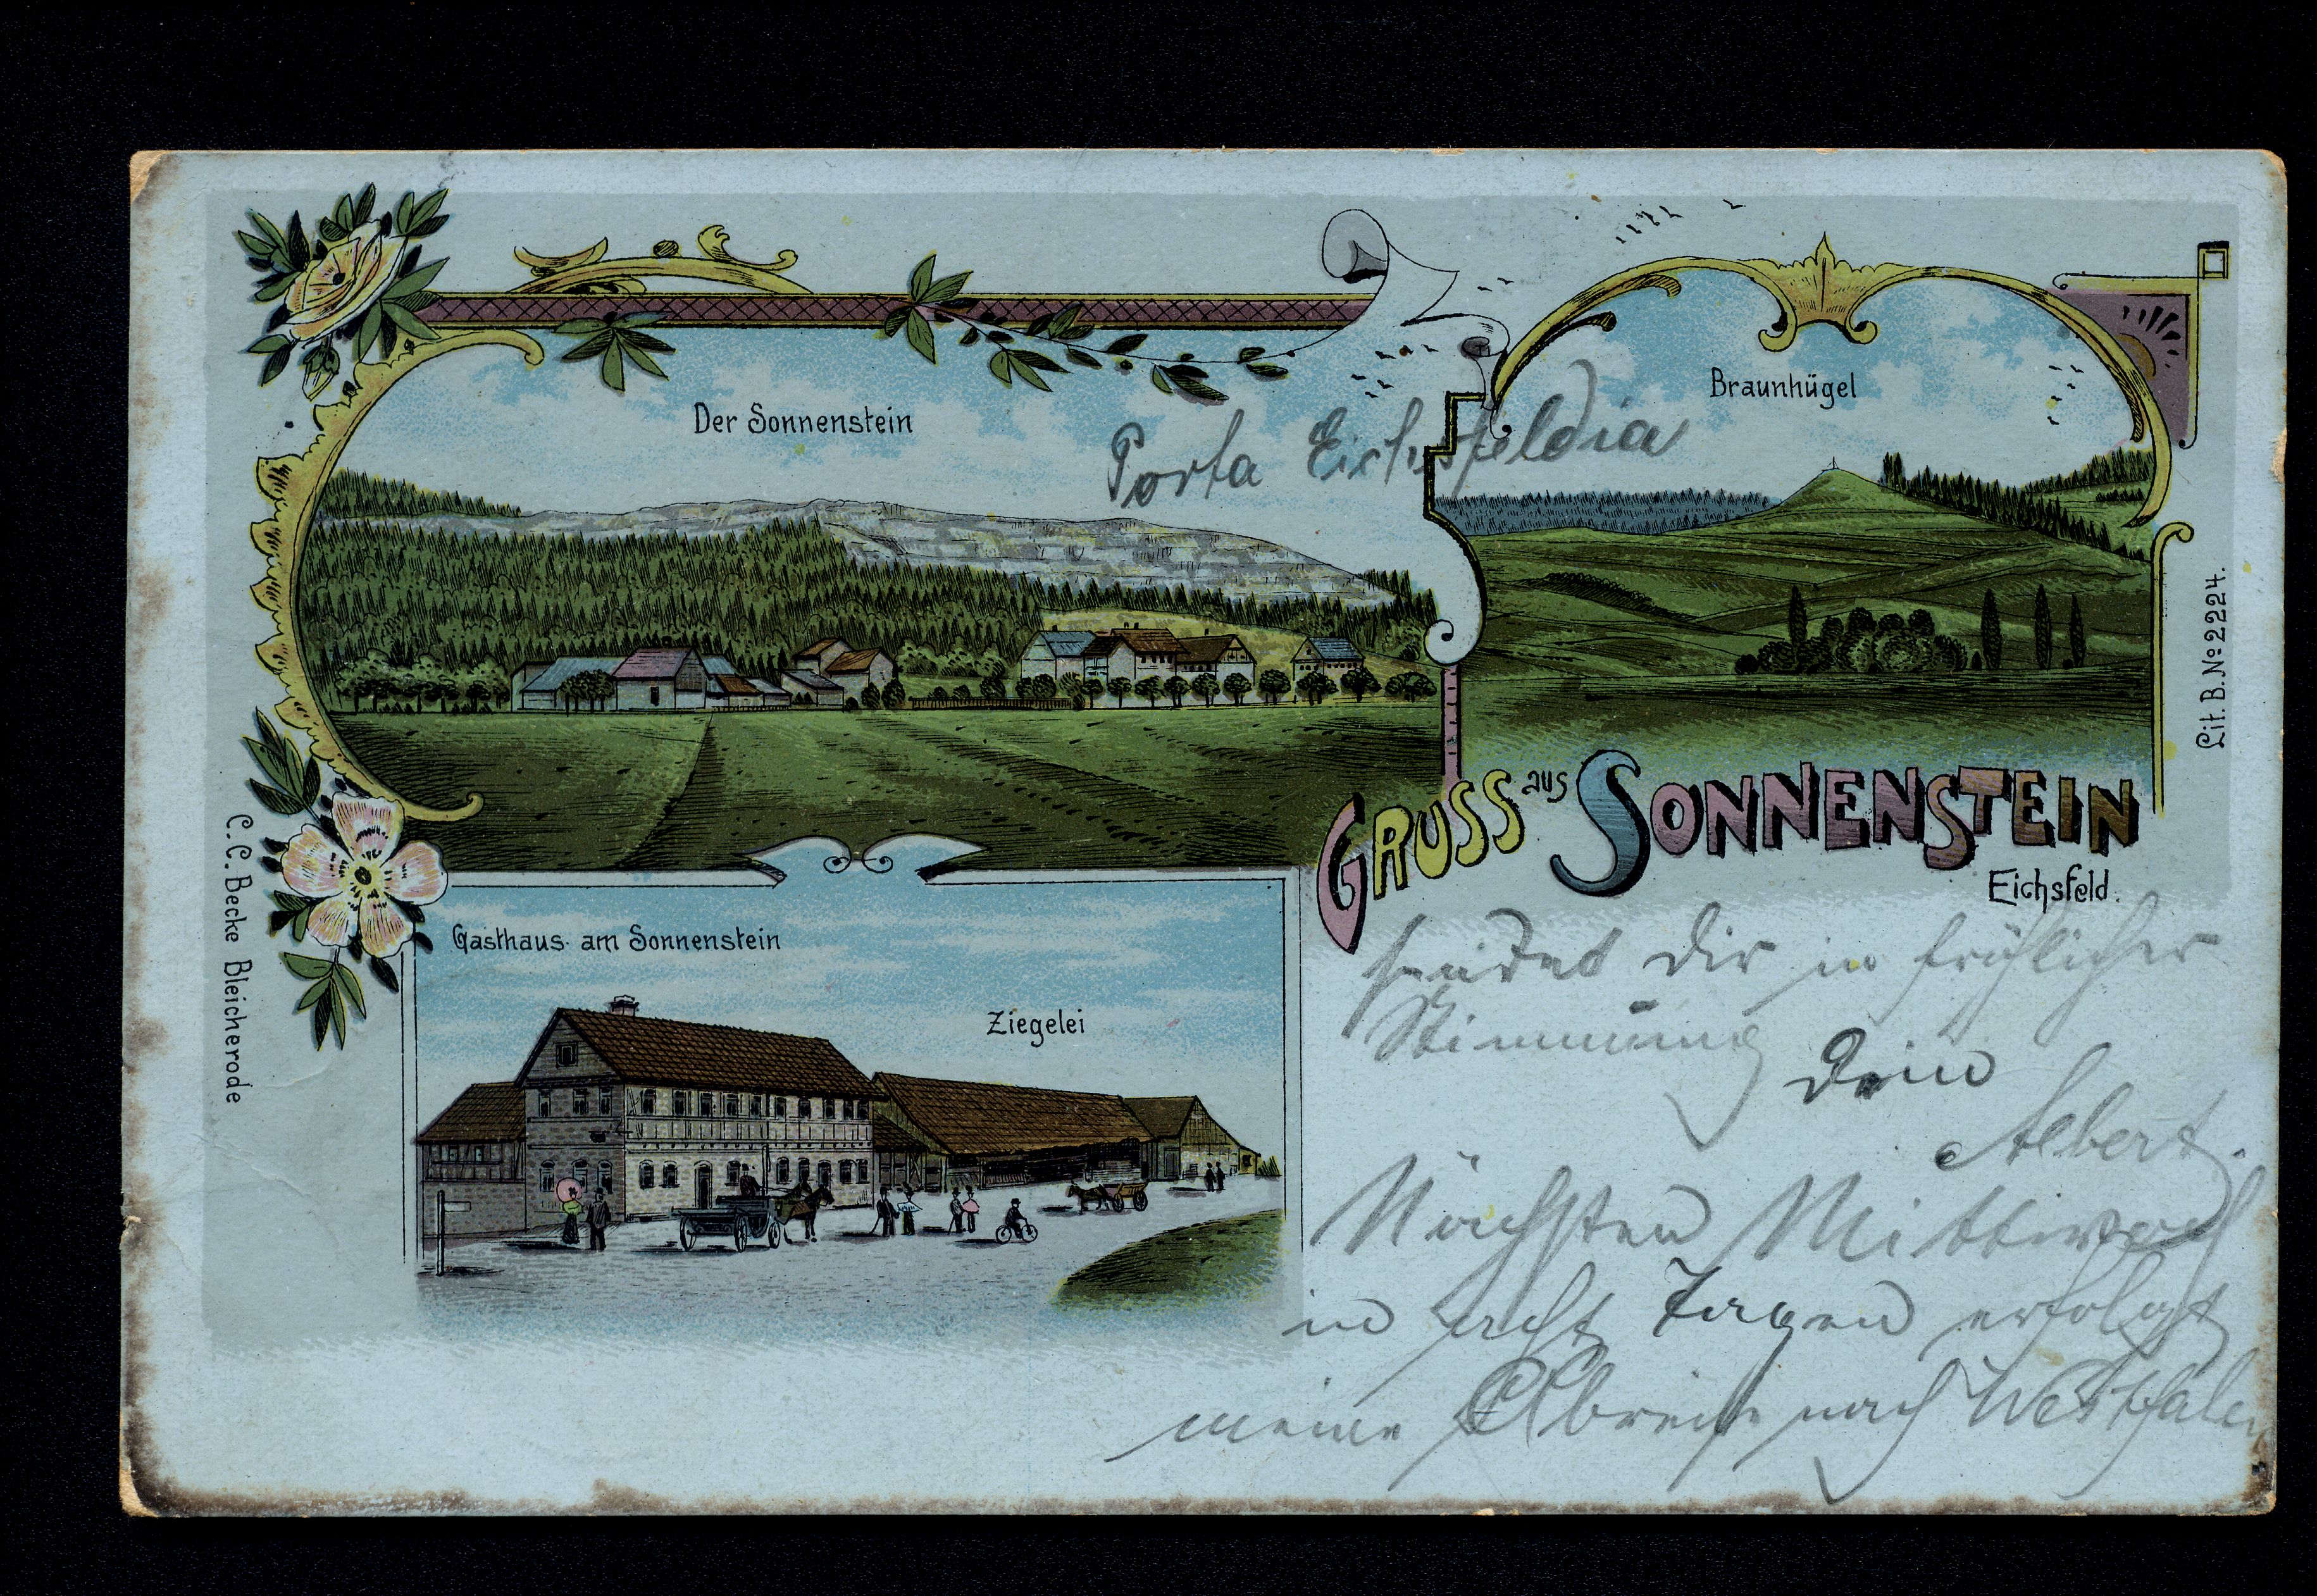 Der Sonnenstein
Braunhügel
Porta Eichsfeldia
Lit. B. No 2224.
Gruss aus Sonnenstein
Eichsfeld.
C. C. Becke Bleicherode
Gasthaus am Sonnenstein
Ziegelei
sendet Dir in fröhlicher
Stimmung
Dein
Albert.
Nächsten Mittwoch
in acht Tagen erfolgt
meine Abreise nach Westfalen